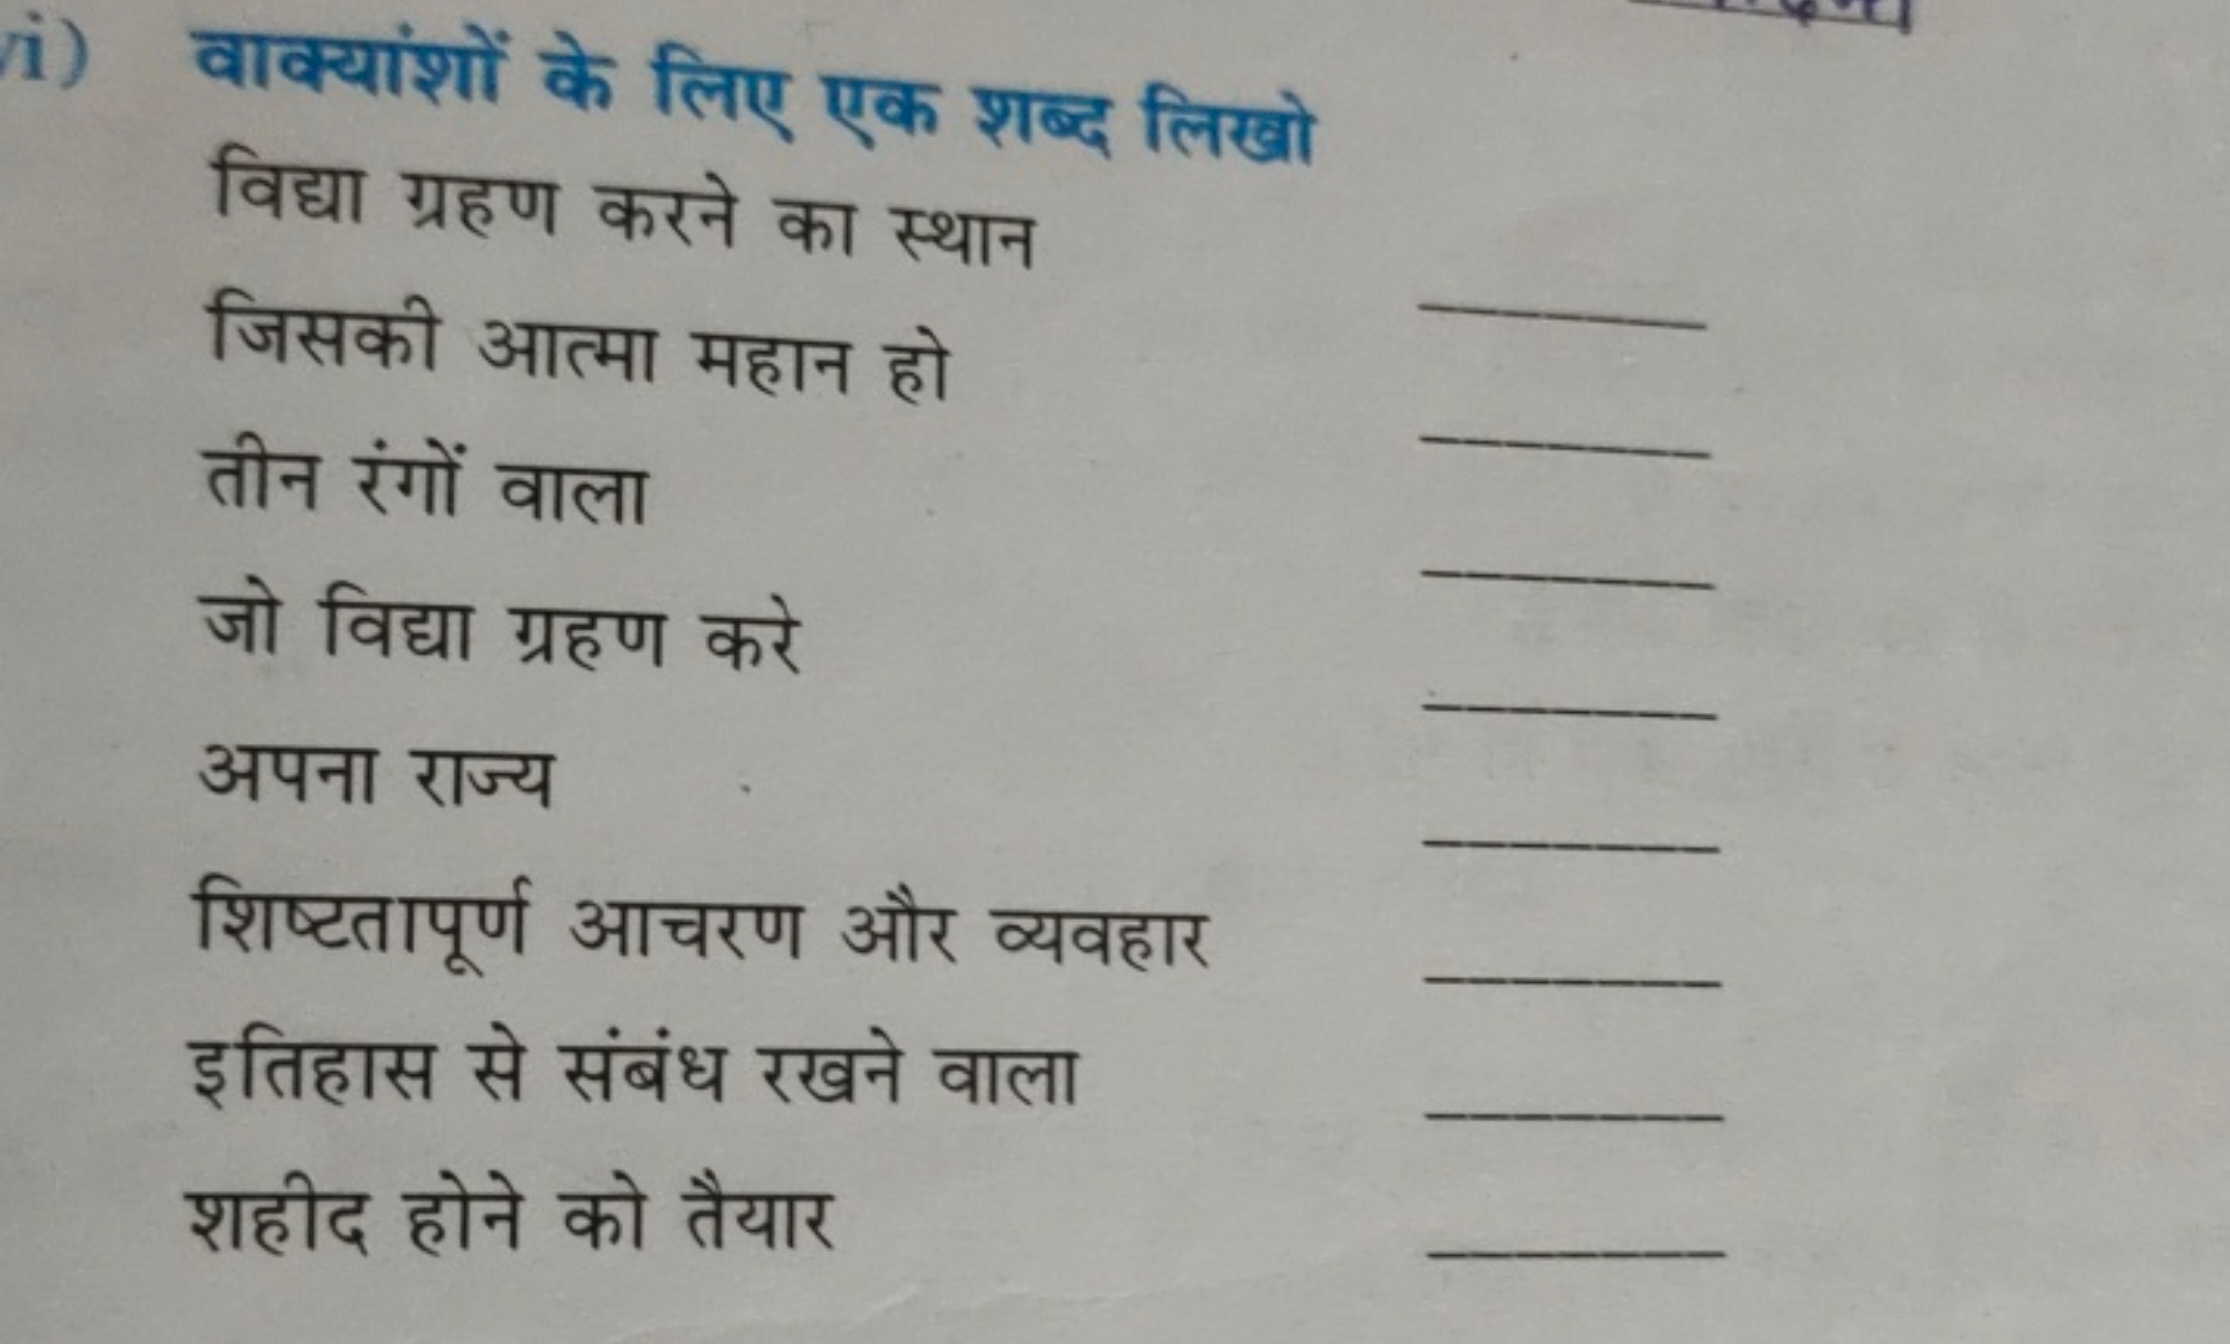 vi) वाक्यांशों के लिए एक शब्द लिखो
विद्या ग्रहण करने का स्थान
जिसकी आत्मा महान हो
तीन रंगों वाला
जो विद्या ग्रहण करे
अपना राज्य
शिष्टतापूर्ण आचरण और व्यवहार
इतिहास से संबंध रखने वाला
शहीद होने को तैयार